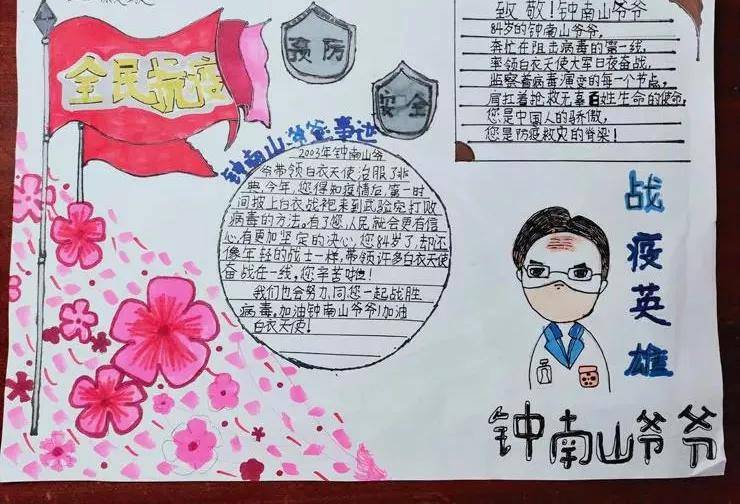 全民抗疫
预防
安全
致敬!钟南山爷爷
84岁的钟南山爷爷,
奔忙在阻击病毒的第一线,
率领白衣天使大军日夜奋战,
监察着病毒演变的每一个节点,
肩扛着抢救无辜百姓生命的使命,
您是中国人的骄傲,
您是防疫救灾的脊梁!
钟南山爷爷事迹
2003年钟南山爷
爷带领白衣天使治服了非
典,今年,您得知疫情后,第一时
间披上白衣战袍来到武
病毒的方法。有了您,人民就会更有信
心,有更加坚定的决心,您84岁了,却还
像年轻的战士一样,带领许多白衣天使
奋战在一线,您辛苦啦!
我们也会努力,同您一起战胜
病毒,加油钟南山爷爷!加油
白衣天使!
战疫英雄
钟南山爷爷